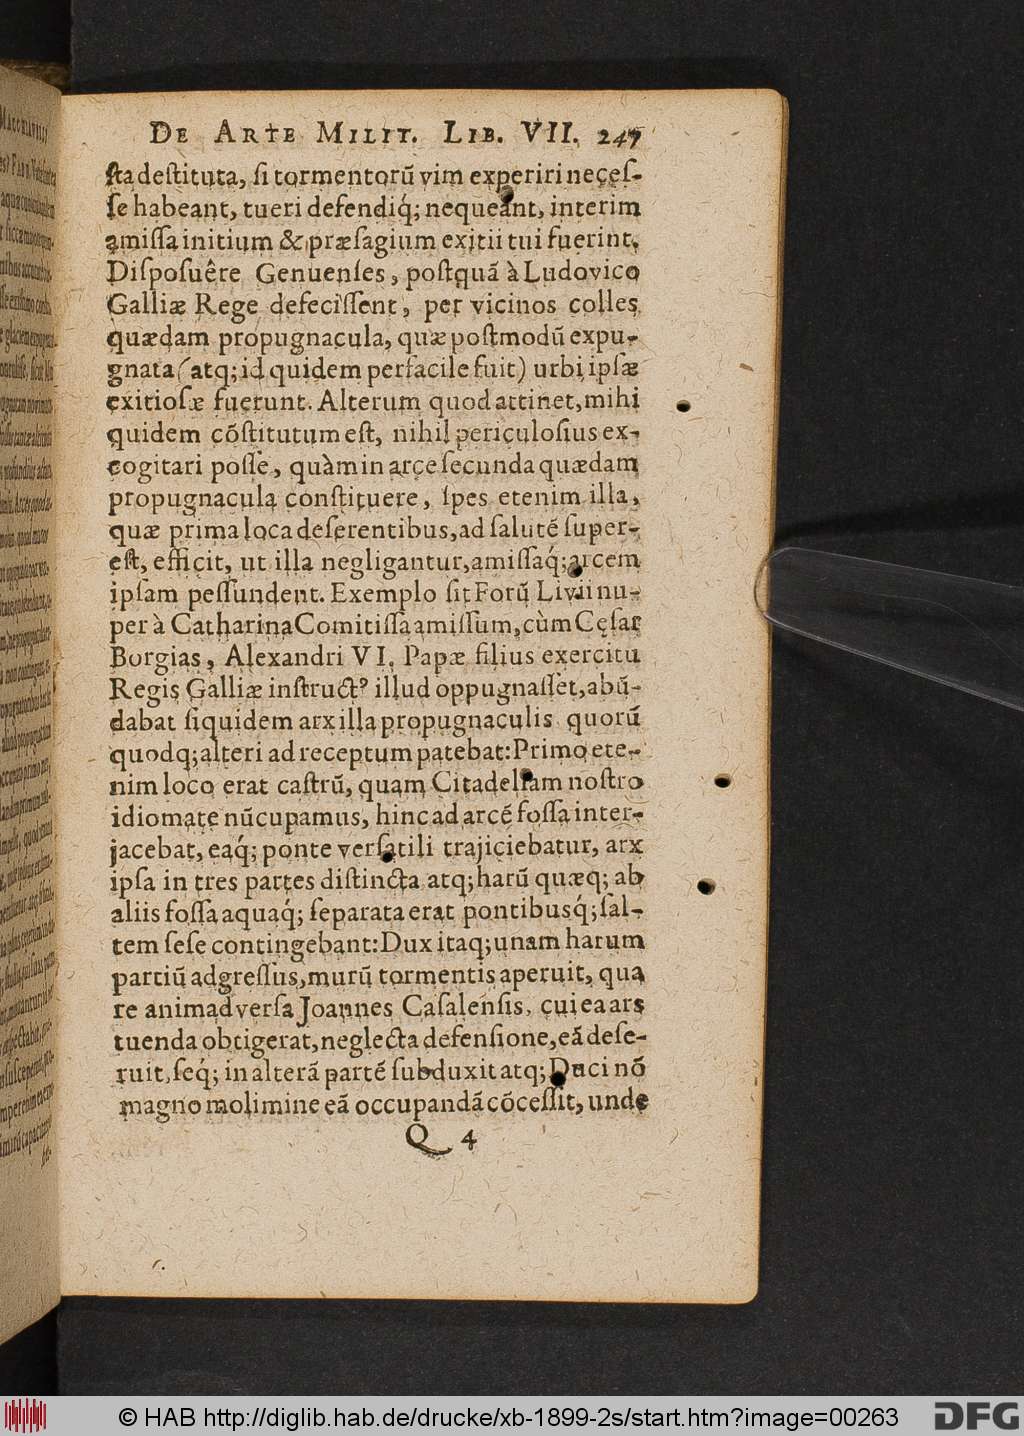 DE ARTE MILIT. LIB. VII. 247
ſta deſtituta, ſi tormentorũ vim experiri neceſ-
ſe habeant, tueri defendiq́; nequeant, interim
amiſſa initium & præſagium exitii tui fuerint.
Diſpoſuêre Genuenſes, poſtquã à Ludovico
Galliæ Rege defeciſſent, per vicinos colles
quædam propugnacula, quæ poſtmodũ expu-
gnata (atq; id quidem perfacile fuit) urbi ipſæ
exitioſæ fuerunt. Alterum quod attinet, mihi
quidem cõſtitutum eſt, nihil periculoſius ex-
cogitari poſſe, quàm in arce ſecunda quædam
propugnacula conſtituere, ſpes etenim illa,
quæ prima loca deſerentibus, ad ſalutẽ ſuper-
eſt, efficit, ut illa negligantur, amiſſaq́; arcem
ipſam peſſundent. Exemplo ſit Forũ Livii nu-
per à Catharina Comitiſſa amiſſum, cùm Cęſar
Borgias, Alexandri VI. Papæ filius exercitu
Regis Galliæ inſtructꝰ illud oppugnaſſet, abũ-
dabat ſiquidem arx illa propugnaculis quorũ
quodq; alteri ad receptum patebat: Primo ete-
nim loco erat caſtrũ, quam Citadellam noſtro
idiomate nũcupamus, hinc ad arcẽ foſſa inter-
jacebat, eaq́; ponte verſatili trajiciebatur, arx
ipſa in tres partes diſtincta atq; harũ quæq; ab
aliis foſſa aquaq́; ſeparata erat pontibusq́; ſal-
tem ſeſe contingebant: Dux itaq; unam harum
partiũ adgreſſus, murũ tormentis aperuit, qua
re animadverſa Joannes Caſalenſis, cui ea ars
tuenda obtigerat, neglecta defenſione, eã deſe-
ruit, ſeq́; in alterã partẽ ſubduxit atq; Duci nõ
magno molimine eã occupandã cõceſſit, unde
Q 4
© HAB http://diglib.hab.de/drucke/xb-1899-2s/start.htm?image=00263
DFG